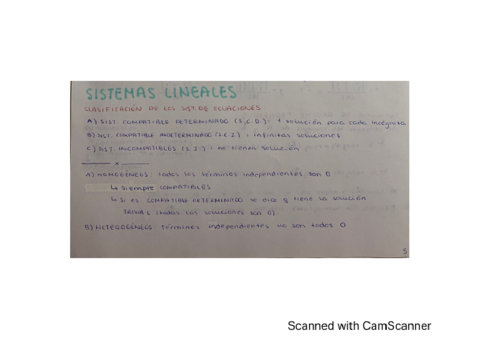 SISTEMAS LINEALES
CLASIFICACIÓN DE LOS SIST. DE ECUACIONES
A) SIST. COMPATIBLE DETERMINADO (S.C.D.): 1 solución para cada incógnita
B) SIST. COMPATIBLE INDETERMINADO (S.C.I.): infinitas soluciones
C) SIST. INCOMPATIBLES (S.I.): no tienen solución
x
A) HOMOGÉNEOS: todos los términos independientes son 0
↳ Siempre COMPATIBLES
↳ Si es COMPATIBLE DETERMINADO se dice q tiene la SOLUCIÓN
TRIVIAL (todas las soluciones son 0)
B) HETEROGÉNEOS: términos independientes no son todos 0
5
Scanned with CamScanner